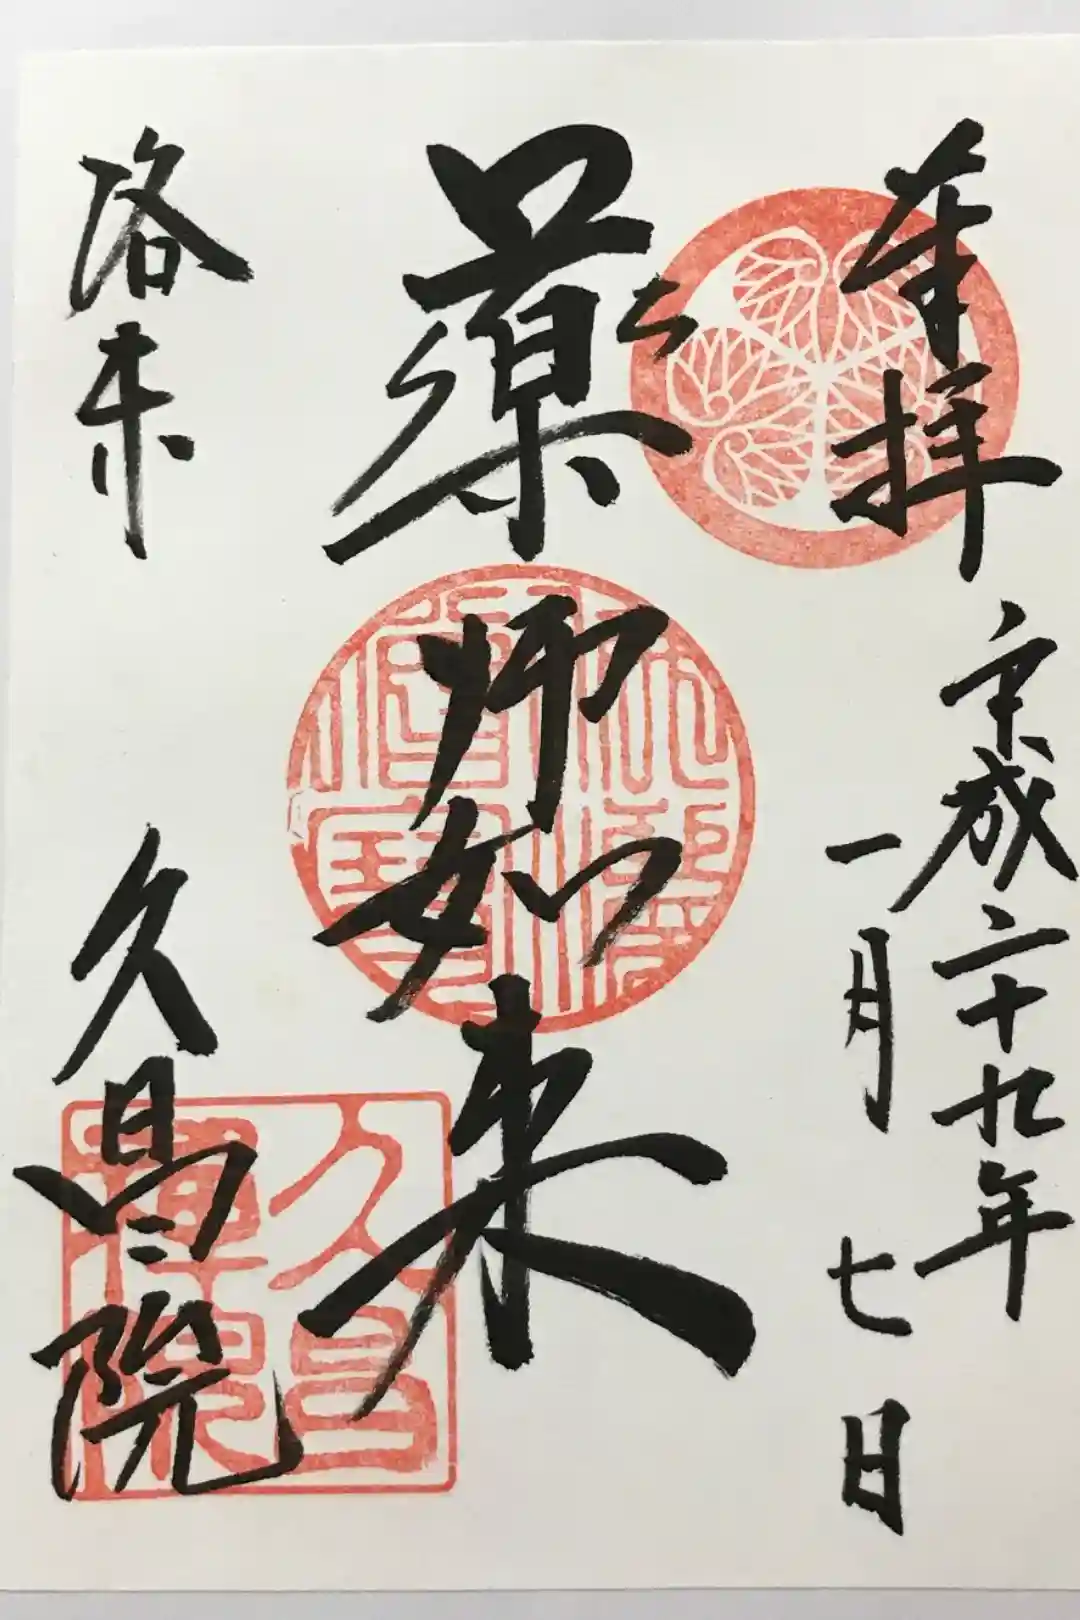 奉拝
平成二十九年
一月七日
薬師如来
佛法僧寶
洛東
久昌院
久昌禅院